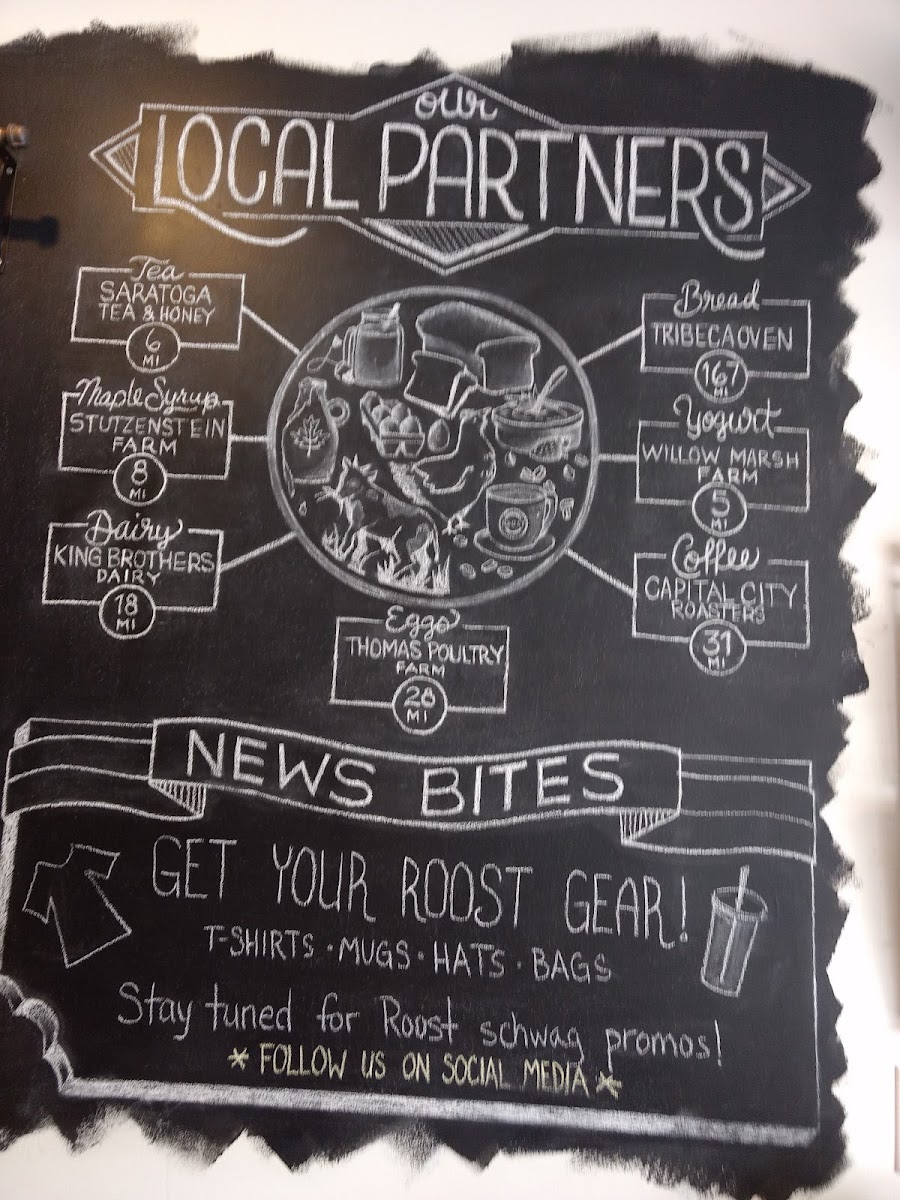 our
LOCAL PARTNERS
Tea
SARATOGA
TEA & HONEY
6
MI
Maple Syrup
STUTZENSTEIN
FARM
8
MI
Dairy
KING BROTHERS
DAIRY
18
MI
Eggs
THOMAS POULTRY
FARM
28
MI
Bread
TRIBECA OVEN
167
MI
Yogurt
WILLOW MARSH
FARM
5
MI
Coffee
CAPITAL CITY
ROASTERS
31
MI
NEWS BITES
GET YOUR ROOST GEAR!
T-SHIRTS · MUGS · HATS · BAGS
Stay tuned for Roost schwag promos!
* FOLLOW US ON SOCIAL MEDIA *